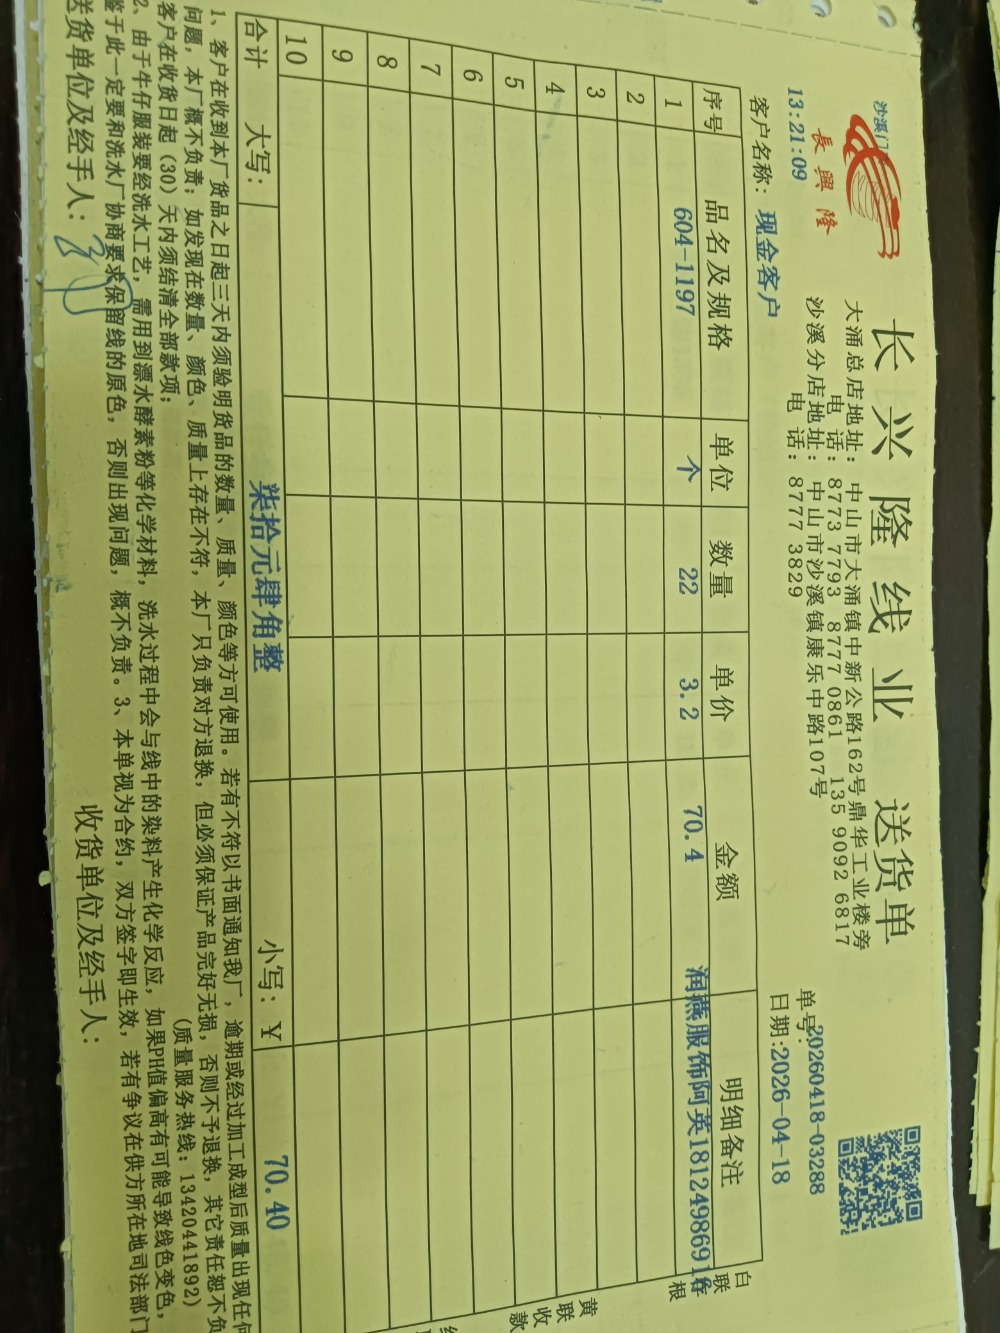 沙溪门
長興隆
长兴隆线业 送货单
大涌总店地址：中山市大涌镇中新公路162号鼎华工业楼旁
电 话：8773 7793 8777 0861 135 9092 6817
沙溪分店地址：中山市沙溪镇康乐中路107号
电 话：8777 3829
13:21:09
单号：20260418-03288
客户名称：现金客户
日期:2026-04-18
序号 品名及规格 单位 数量 单价 金额 明细备注
1 604-1197 个 22 3.2 70.4 润燕服饰阿英18124986916
2
3
4
5
6
7
8
9
10
合计 大写： 柒拾元肆角整 小写：￥ 70.40
白联存根
黄联收款
1、客户在收到本厂货品之日起三天内须验明货品的数量、质量、颜色等方可使用。若有不符以书面通知我厂，逾期或经过加工成型后质量出现任何
问题，本厂概不负责；如发现在数量、颜色、质量上存在不符，本厂只负责对方退换，但必须保证产品完好无损，否则不予退换，其它责任恕不负
客户在收货日起（30）天内须结清全部款项； （质量服务热线：13420441892）
2、由于牛仔服装要经洗水工艺，需用到漂水酵素粉等化学材料，洗水过程中会与线中的染料产生化学反应，如果PH值偏高有可能导致线色变色，
鉴于此一定要和洗水厂协商要求保留线的原色，否则出现问题，概不负责。3、本单视为合约，双方签字即生效，若有争议在供方所在地司法部门
送货单位及经手人： 收货单位及经手人：